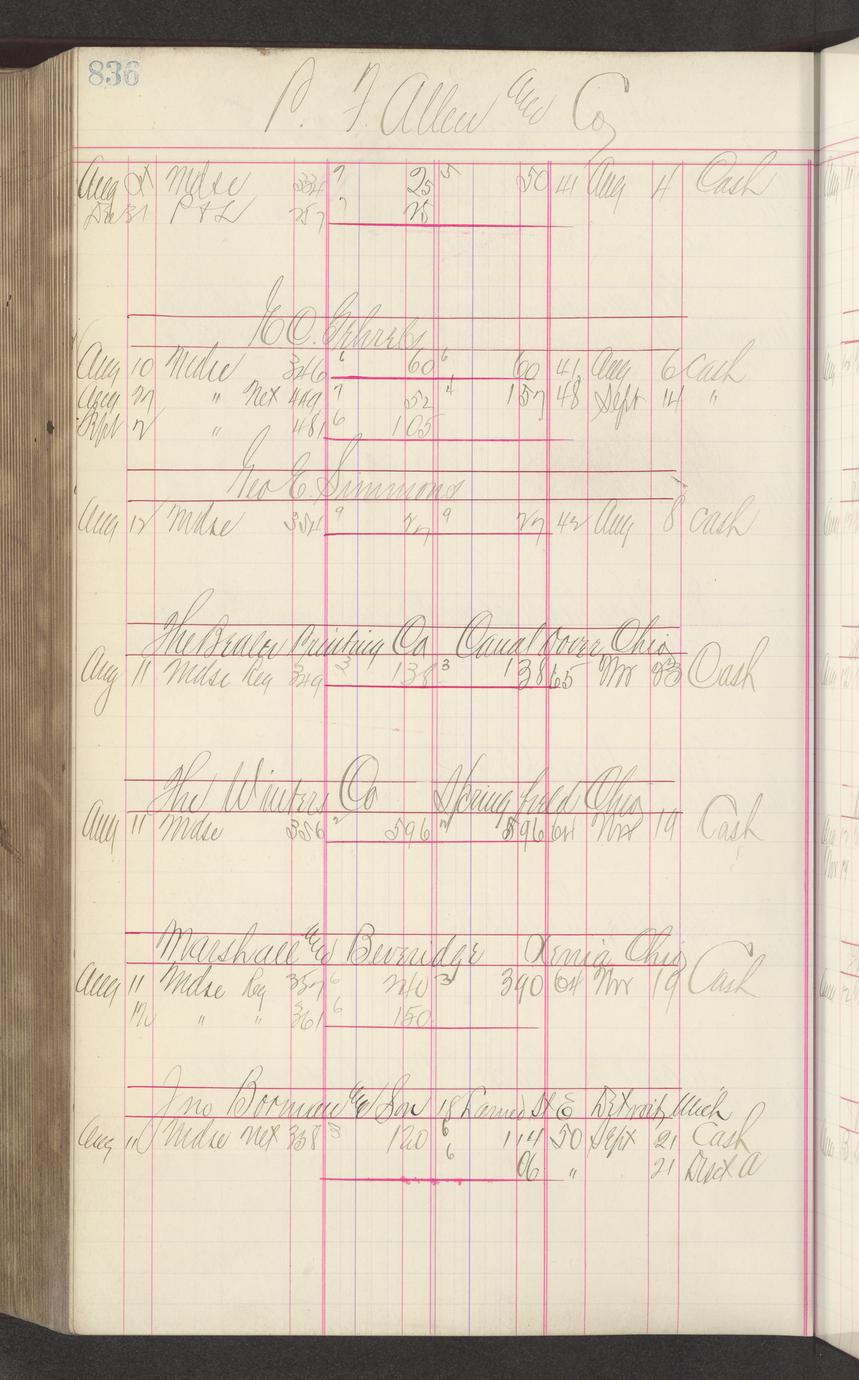 836
P. F. Allen and Co
Aug Mdse 334 7 25 5 50 41 Aug 4 Cash
Dec 31 P & L 257 7 25
E O. Gehrels
Aug 10 Mdse 346 6 60 6 60 41 Aug 6 Cash
Aug 27 " Net 449 7 52 4 157 48 Sept 14 "
Sept 2 " 481 6 105
Geo E. Simmons
Aug 12 Mdse 354 9 27 9 27 42 Aug 8 Cash
The Beacon Printing Co Canal Dover, Ohio
Aug 11 Mdse Reg 349 3 138 3 138 65 Nov 23 Cash
The Winters Co Springfield Ohio
Aug 11 Mdse 356 2 596 2 596 64 Nov 19 Cash
Marshall and Beveridge Xenia Ohio
Aug 11 Mdse Reg 357 6 240 3 390 64 Nov 19 Cash
12 " " 361 6 150
Jno Borman and Son 18 Larned St E Detroit, Mich
Aug 11 Mdse Net 358 3 120 6 114 50 Sept 21 Cash
6 06 " 21 Disct A